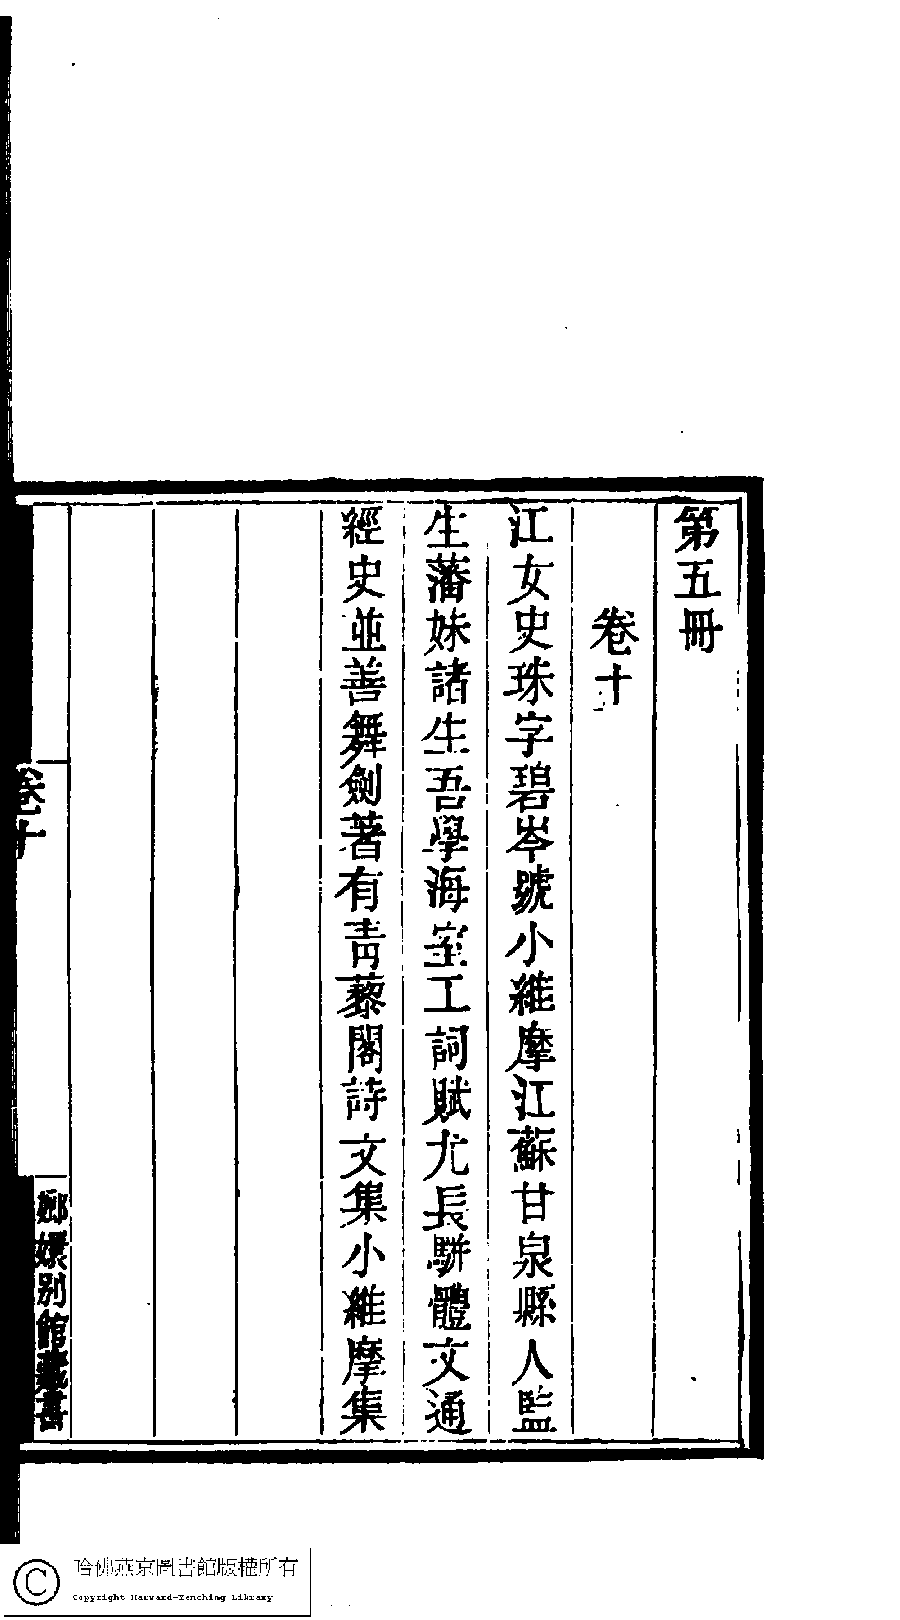 第五冊
卷十
江女史珠字碧岑號小維摩江蘇甘泉縣人監
生藩妹諸生吾學海室工詞賦尤長駢體文通
經史並善舞劍著有青藜閣詩文集小維摩集
卷十
嫏嬛别館藏書
哈佛燕京圖書館版權所有
Copyright Harvard-Yenching Library